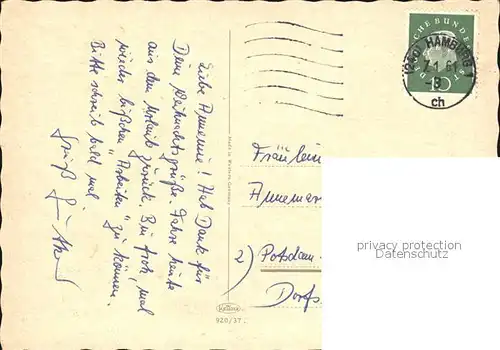 Liebe Annemie! Hab Dank für
Deine Weihnachtsgrüße. Fahre heute
aus dem Urlaub zurück. Bin froh, mal
wieder bißchen "Arbeiten" zu können.
Bitte schreib bald mal.
Gruß Günther
Made in Western Germany
Krüger
920/37
DEUTSCHE BUNDESPOST
HAMBURG 1
7.1.61
ch
Fräulein
Annemar
2) Potsdam-
Dorfs
privacy protection
Datenschutz